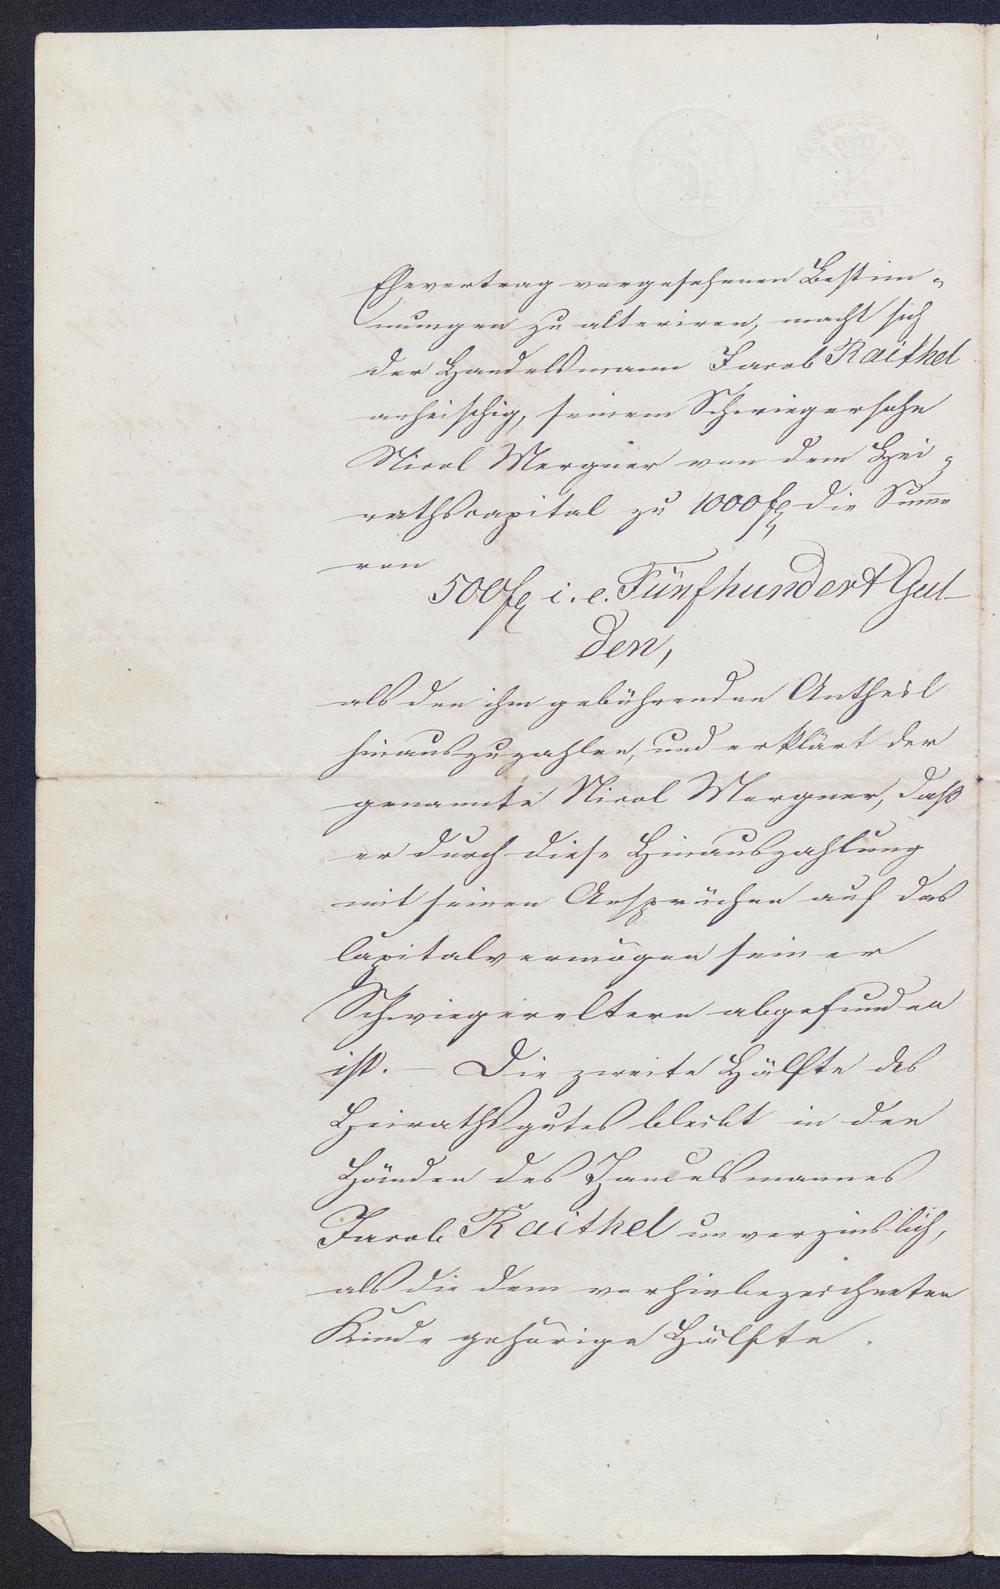 Ehevertrag vorgesehenen Bestim-
mungen zu alteriren, macht sich
der Handelsmann Jacob Raithel
anheischig, seinem Schwiegersohn
Nicol Mergner von dem Hei-
rathscapital zu 1000 fl die Summe
von
500 fl i. e. Fünfhundert Gul-
den,
als den ihm gebührenden Antheil
hinauszuzahlen, und erklärt der
genannte Nicol Mergner, daß
er durch diese Hinauszahlung
mit seinen Ansprüchen auf das
Capitalvermögen seiner
Schwiegereltern abgefunden
ist. – Die zweite Hälfte des
Heirathsgutes bleibt in den
Händen des Handelsmannes
Jacob Raithel unverzinslich,
als die dem vorhinbezeichneten
Kinde gehörige Hälfte.